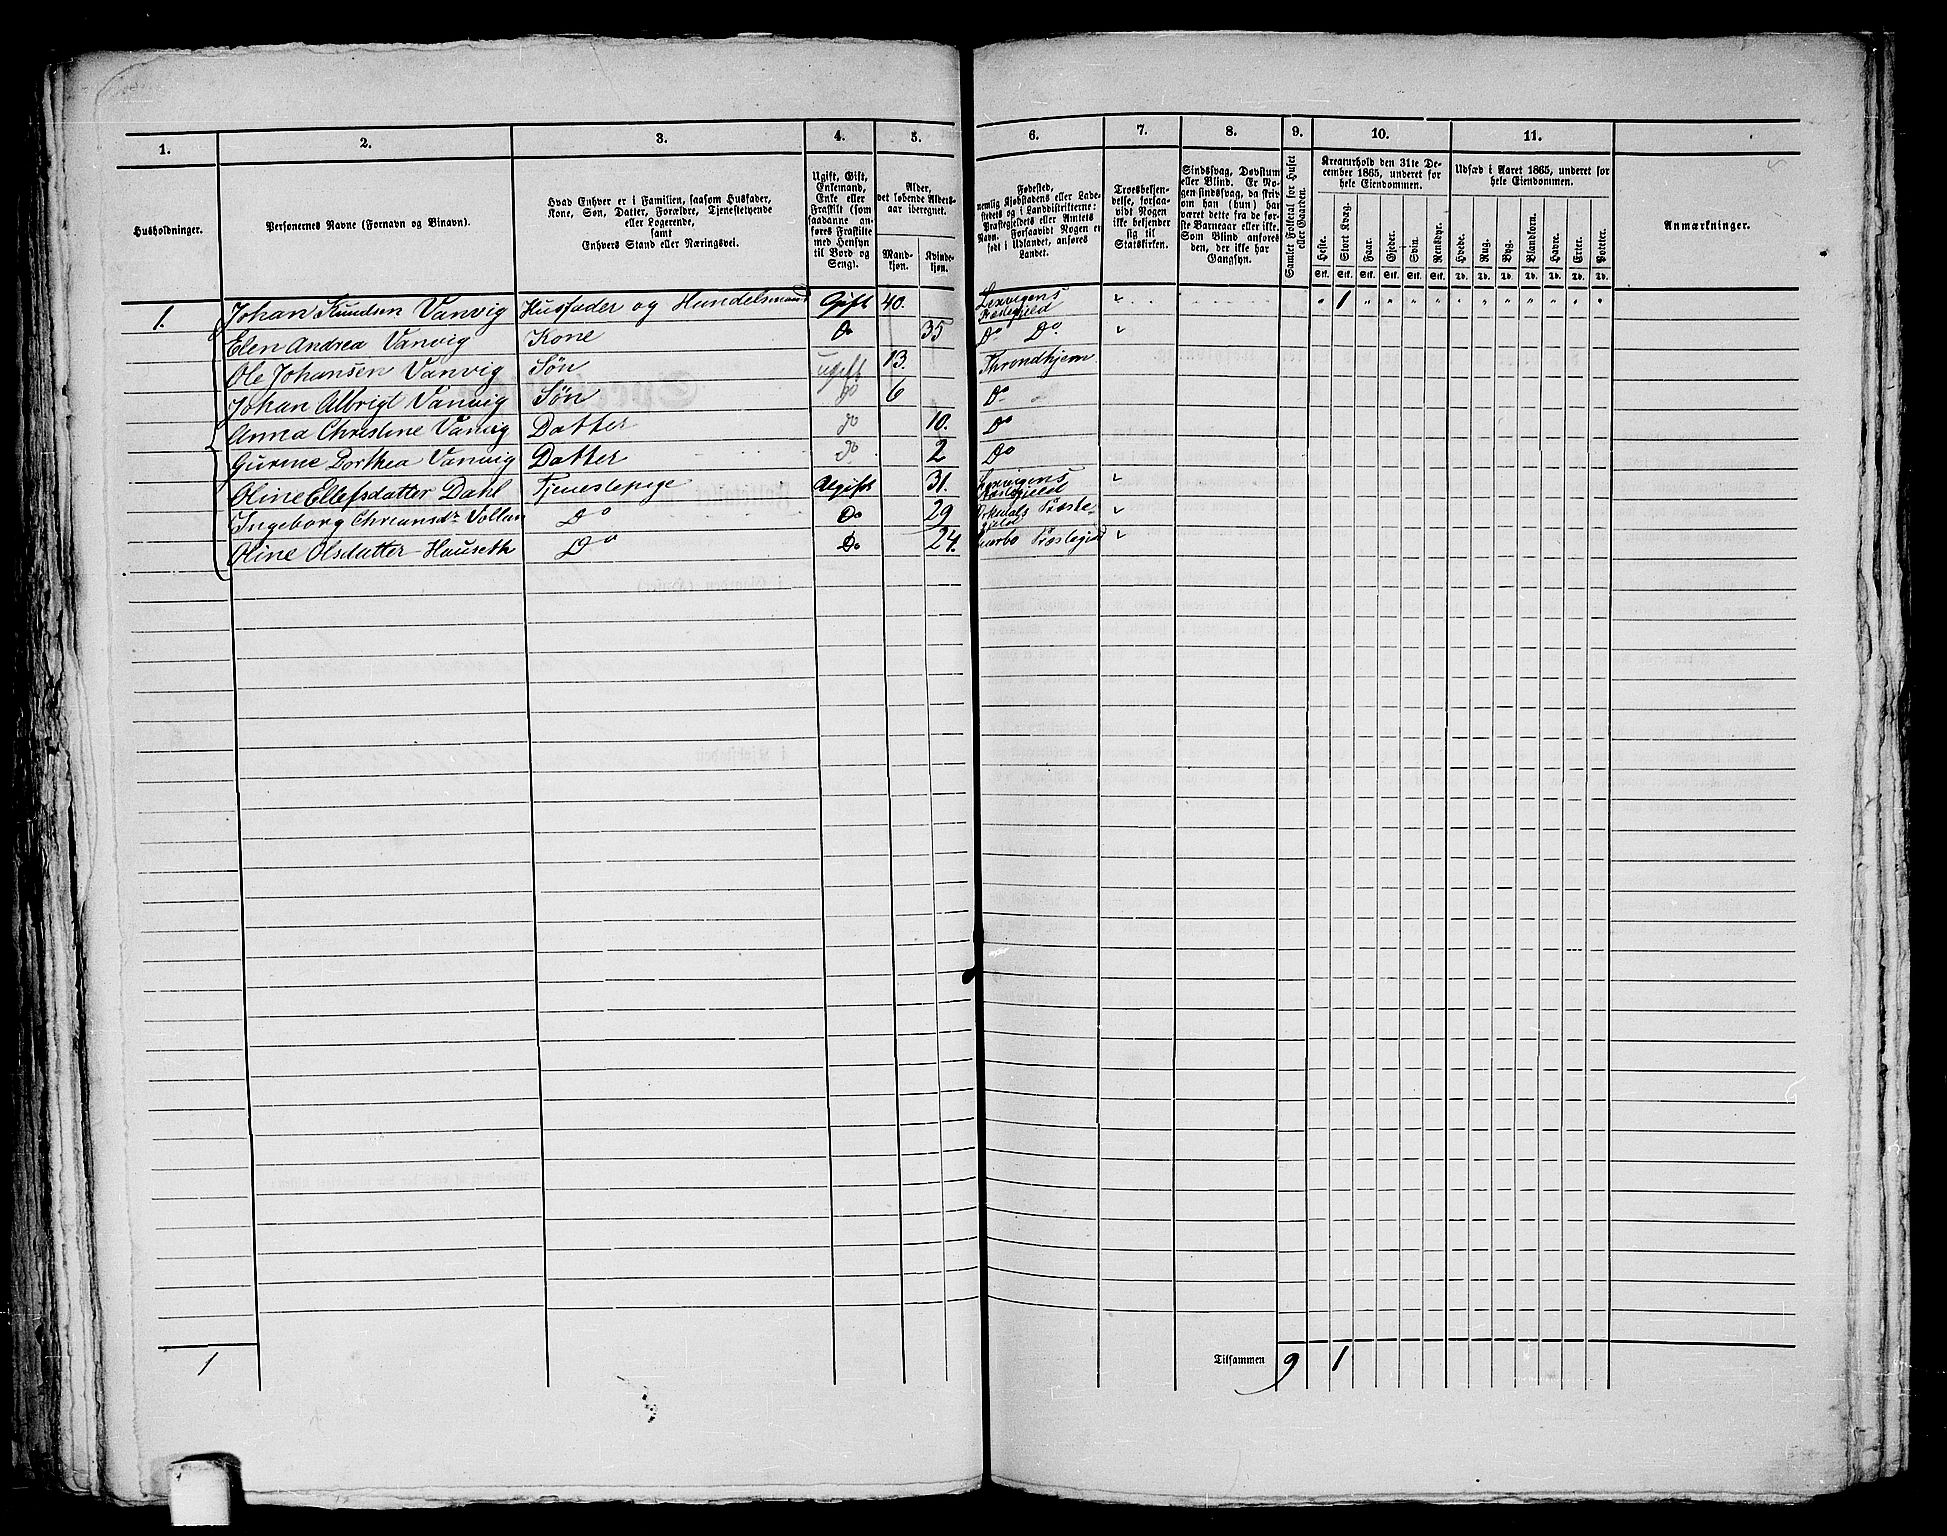 1. 2. 3. 4. 5. 6. 7. 8. 9. 10. 11.
Husholdninger.
Personernes Navne (Fornavn og Binavn).
Hvad Enhver er i Familien, saasom Husfader,
Kone, Søn, Datter, Forældre, Tjenestetyende
eller Logerende,
samt
Enhvers Stand eller Næringsvei.
Ugift, Gift,
Enkemand,
Enke eller
Fraskilt (som
saadanne an-
føres Fraskilte
med Hensyn
til Bord og
Seng).
Alder,
det løbende Alders-
aar iberegnet.
Mand-
kjøn.
Kvinde-
kjøn.
Fødested,
nemlig Kjøbstadens eller Lade-
stedets og i Landdistrikterne:
Præstegjeldets eller Amtets
Navn. Forsaavidt Nogen er
født i Udlandet, anføres
Landet.
Troesbekjen-
delse, forsaa-
vidt Nogen
ikke bekjender
sig til
Statskirken.
Sindssvag, Døvstum
eller Blind. Er No-
gen sindssvag, da skriv
om han (hun) har
været dette fra de før-
ste Barneaar eller ikke.
Som Blind anføres
den, der ikke har
Gangsyn.
Samlet Folketal for Huset
eller Gaarden.
Kreaturhold den 31te De-
cember 1865, underet for
hele Eiendommen.
Heste. Stort Kvæg. Faar. Gjeder. Svin. Rensdyr.
Stk. Stk. Stk. Stk. Stk. Stk.
Udsæd i Aaret 1865, underet for
hele Eiendommen.
Hvede. Rug. Byg. Blandkorn. Havre. Erter. Poteter.
Td. Td. Td. Td. Td. Td. Td.
Anmærkninger.
1. Johan Knudsen Vanvig Husfader og Handelsmand Gift 40. Lexvigens Præstegjeld " " 1 " " " " " " " " " " "
Elen Andrea Vanvig Kone Do 35 Do Do "
Ole Johansen Vanvig Søn ugift 13. Throndhjem
Johan Albrigt Vanvig Søn do 6 Do
Anna Christine Vanvig Datter do 10. Do
Gurine Dorthea Vanvig Datter do 2 Do
Oline Ellefsdatter Dahl Tjenestepige Ugift 31. Lexvigens Præstegjeld "
Ingeborg Do Do 29 Orkedals Præstegjeld "
Oline Olsdatter Hauseth Do Do 24. Præstegjeld "
1
Tilsammen 9 1